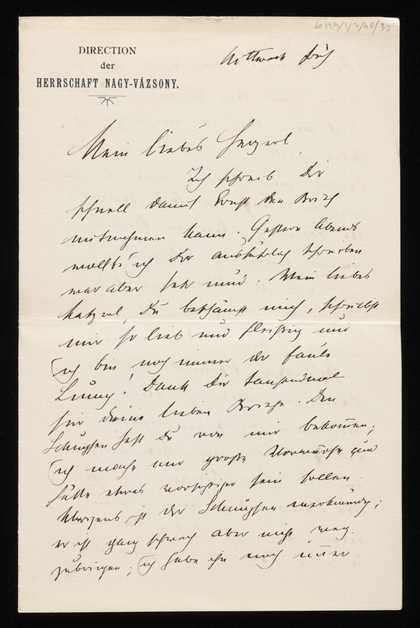 DIRECTION
der
HERRSCHAFT NAGY-VÁZSONY.
Mittwoch Früh
Mein liebes
Ich schreib Dir
schnell damit Ernst den Brief
mitnehmen kann. Gestern Abend
wollt' ich Dir ausführlich schreiben
war aber sehr müd. Mein liebes
Katzerl, Du beschämst mich, schreibst
mir so lieb und fleißig und
ich bin noch immer der faule
Dank Dir tausendmal
für deine lieben Briefe. Den
Schnupfen hast Du von mir bekommen;
ich mache mir große Vorwürfe und
hätte etwas vorsichtiger sein sollen.
Übrigens ist der Schnupfen
er ist ganz schwach aber nicht weg
zubringen; ich habe ihn noch immer